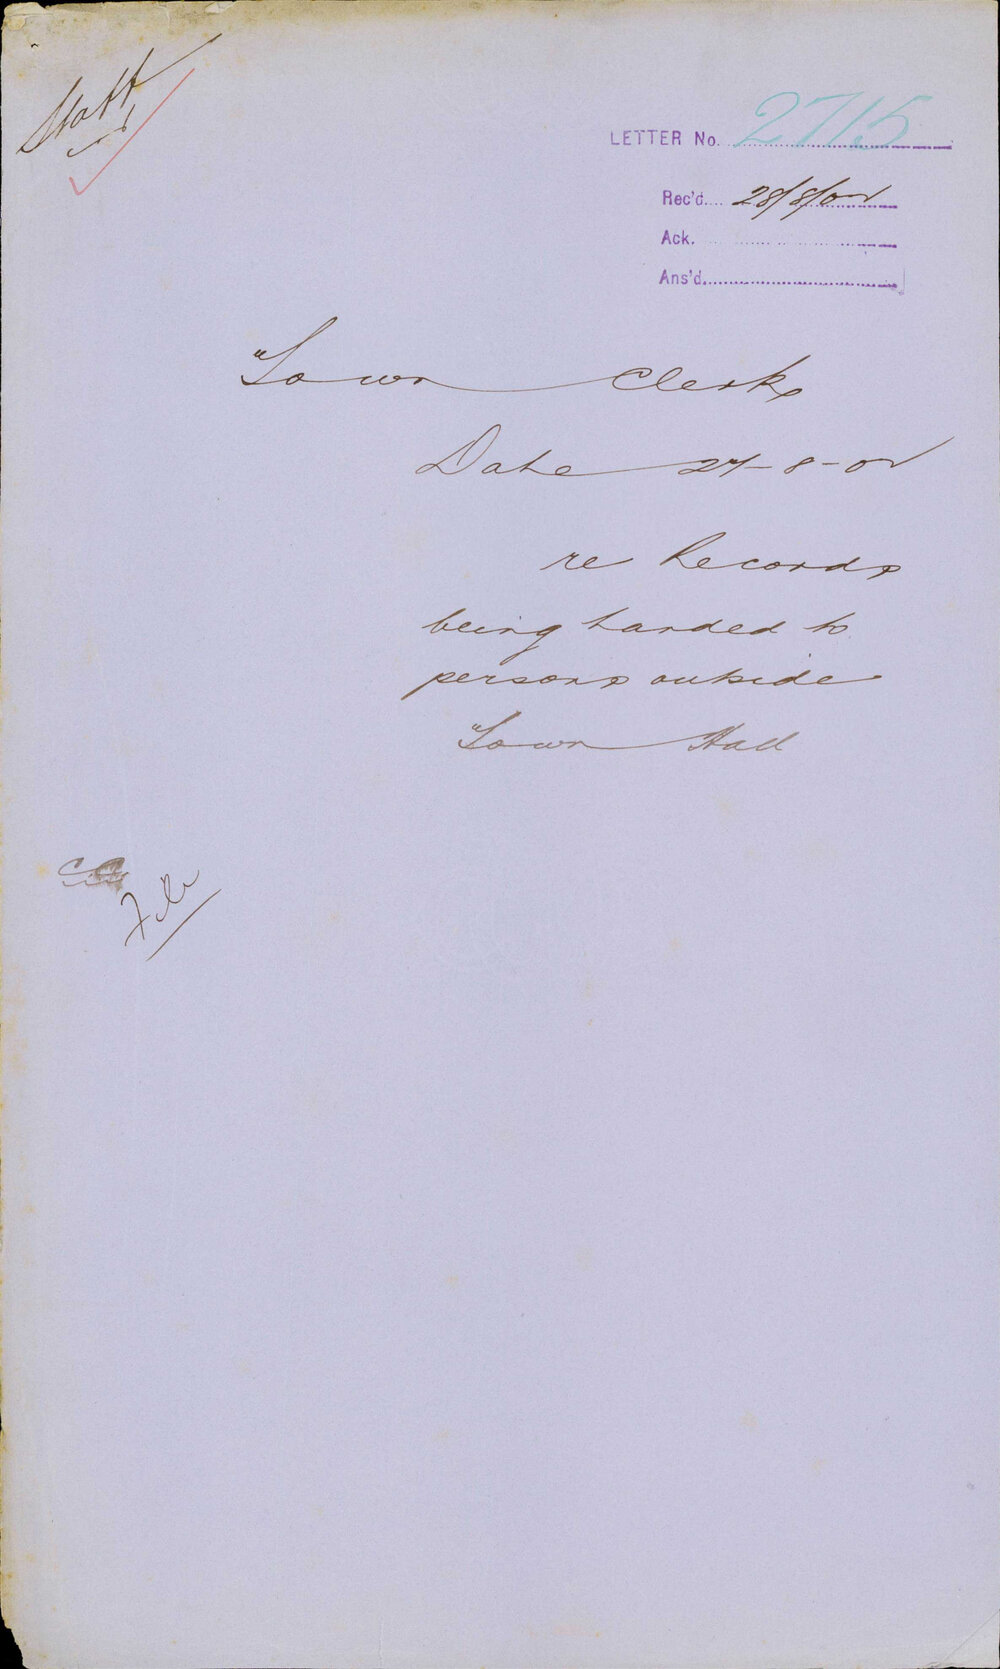 Staff
LETTER No. 2715
Rec'd. 28/8/02
Ack.
Ans'd.
Town Clerk
Date 27-8-02
re Records
being handed to
persons outside
Town Hall
File